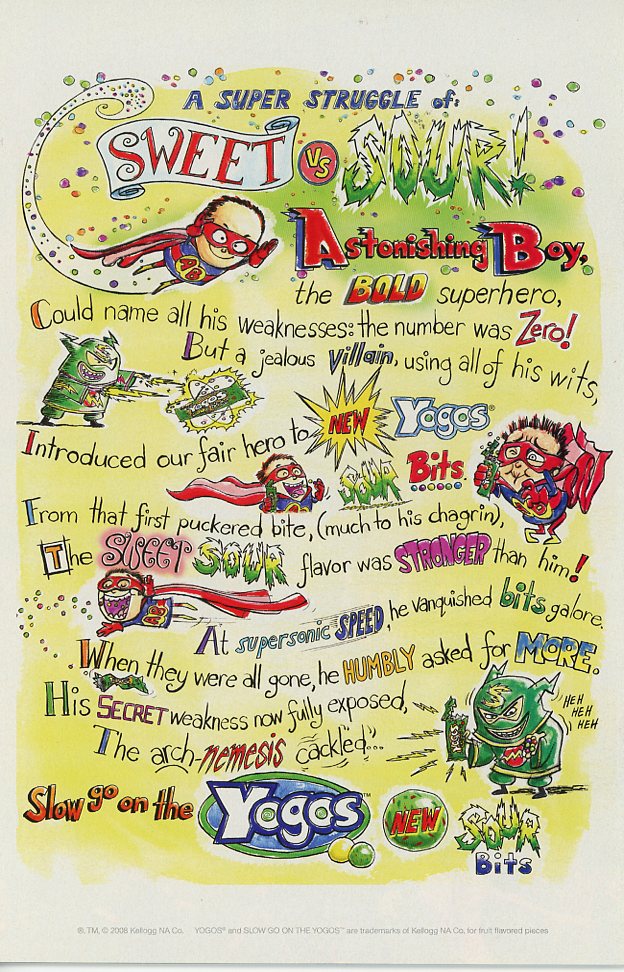 A SUPER STRUGGLE of:
SWEET VS SOUR!
AB
Astonishing Boy,
the BOLD superhero,
Could name all his weaknesses: the number was Zero!
But a jealous Villain, using all of his wits,
Introduced our fair hero to NEW Yogos®
SOUR Bits.
From that first puckered bite, (much to his chagrin),
The SWEET SOUR flavor was STRONGER than him!
At supersonic SPEED, he vanquished bits galore.
When they were all gone, he HUMBLY asked for MORE.
His SECRET weakness now fully exposed,
The arch-nemesis cackled...
HEH
HEH
HEH
Slow go on the Yogos™ NEW SOUR
Bits
®, TM, © 2008 Kellogg NA Co. YOGOS® and SLOW GO ON THE YOGOS™ are trademarks of Kellogg NA Co. for fruit flavored pieces